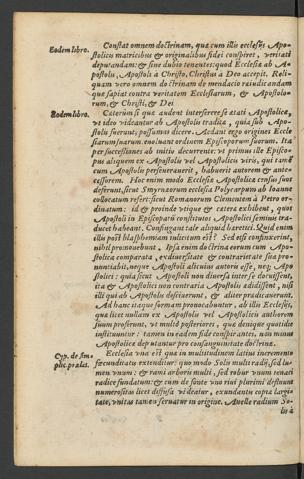 Constat omnem doctrinam, quæ cum illis ecclesijs Apo-
Eodem libro.
stolicis matricibus & originalibus fidei conspiret, veritati
deputandam: & sine dubio tenentes: quod Ecclesiæ ab A-
postolis, Apostoli à Christo, Christus à Deo accepit. Reli-
quam vero omnem doctrinam de mendacio præiudicandam
quæ sapiat contra veritatem Ecclesiarum, & Apostolo-
rum, & Christi, & Dei
Eodem libro.
Cæterum si quæ audent interserere se ætati Apostolicæ,
vt ideo videantur ab Apostolis traditæ, quia sub Apo-
stolis fuerunt: possumus dicere. Aedant ergo origines Eccle
siarum suarum. euoluant ordinem Episcoporum suorum. Ita
per successiones ab initio decurrente: vt primus ille Episco-
pus aliquem ex Apostolis vel Apostolicis viris, qui tamē
cum Apostolis perseuerauerit, habuerit autorem & ante-
cessorem. Hoc enim modo Ecclesiæ Apostolicæ census suos
deferunt, sicut Smyrnæorum ecclesia Polycarpum ab Ioanne
collocatum refert: sicut Romanorum Clementem à Petro or-
dinatum: id & proinde vtique & cæteræ exhibent, quos
Apostoli in Episcopatū constitutos Apostolici seminis tra-
duces habeant. Confingant tale aliquid hæretici. Quid enim
illis post blasphemiam inlicitum est? Sed etsi confinxerint,
nihil promouebunt. Ipsa enim doctrina eorum cum Apo-
stolica comparata, ex diuersitate & contrarietate sua pro-
nuntiabit, neque Apostoli alicuius autoris esse, neque Apo
stolici: quia sicut Apostoli non diuersa inter se docuissent,
ita & Apostolici non contraria Apostolis ædidissent, nisi
illi qui ab Apostolis desciuerunt, & aliter prædicauerunt.
Ad hanc itaque formam prouocabuntur, ab illis Ecclesijs,
quæ licet nullum ex Apostolis vel Apostolicis authorem
suum proferunt, vt multo posteriores, quæ denique quotidie
instituuntur: tamen in eadem fide conspirantes, non minus
Apostolicæ deputantur pro consanguinitate doctrinæ.
Cyp. de sim
plic. prælat.
Ecclesia vna est quæ in multitudinem latius incremento
fœcunditatis extenditur: quo modo Solis multi radij, sed lu-
men vnum: & rami arboris multi, sed robur vnum tenaci
radice fundatum: & cum de fonte vno riui plurimi defluunt
numerositas licet diffusa videatur, exundantis copiæ largi-
tate, vnitas tamen seruatur in origine. Auelle radium So-
lis à